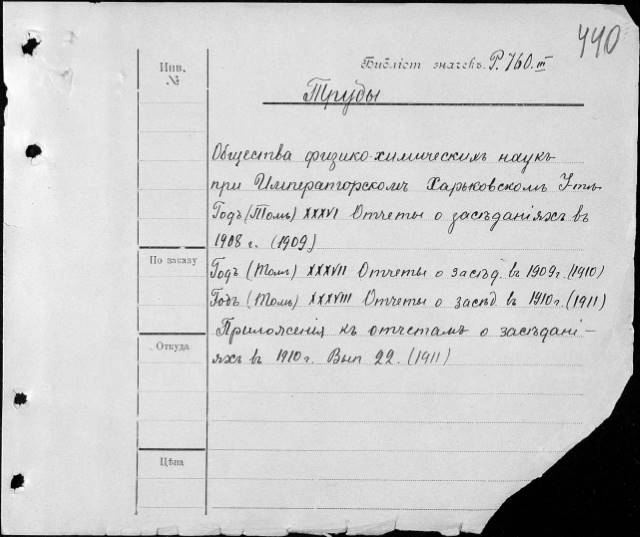 440
Библіот. значекъ. P. 760. III
Инв.
№
Труды
Общества физико-химическихъ наукъ
при Императорскомъ Харьковскомъ У-тѣ
Годъ (Томъ) XXXVI Отчеты о засѣданіяхъ въ
1908 г. (1909)
По заказу
Годъ (Томъ) XXXVII Отчеты о засѣд. въ 1909 г. (1910)
Годъ (Томъ) XXXVIII Отчеты о засѣд въ 1910 г. (1911)
Приложенія къ отчетамъ о засѣдані-
Откуда
яхъ въ 1910 г. Вып 22. (1911)
Цѣна